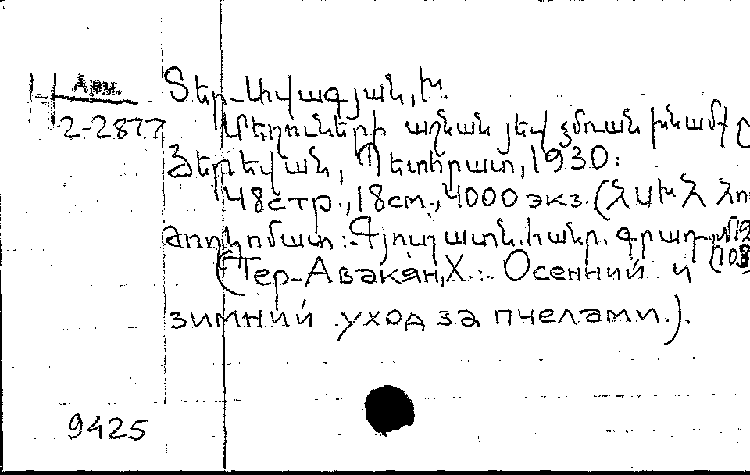 Арм.
2-2877
Տեր-Ավագյան, Խ.
Մեղուների աշնան յեվ ձմռան խնամքը
Յերեվան, Պետհրատ, 1930:
48 стр., 18 см., 4000 экз. (ՀԱԽՀ Հող
ժողկոմատ: Գյուղատնտ. հանր. գրադ.
(Тер-Авакян, Х.: Осенний и
зимний уход за пчелами.).
9425